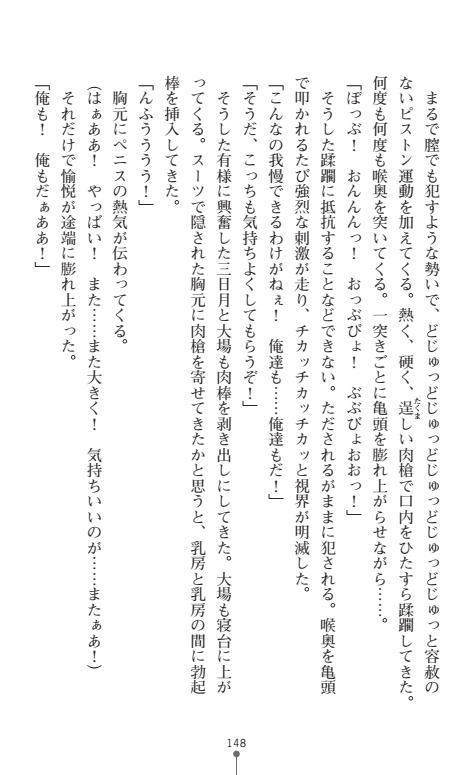 まるで膣でも犯すような勢いで、どじゅっどじゅっどじゅっどじゅっどじゅっと容赦の
ないピストン運動を加えてくる。熱く、硬く、逞しい肉槍で口内をひたすら蹂躙してきた。
何度も何度も喉奥を突いてくる。一突きごとに亀頭を膨れ上がらせながら……。
「ぽっぶ！　おんんんっ！　おっぶぴょ！　ぶぶぴょおおっ！」
そうした蹂躙に抵抗することなどできない。ただされるがままに犯される。喉奥を亀頭
で叩かれるたび強烈な刺激が走り、チカッチカッチカッと視界が明滅した。
「こんなの我慢できるわけがねぇ！　俺達も……俺達もだ！」
「そうだ、こっちも気持ちよくしてもらうぞ！」
そうした有様に興奮した三日月と大場も肉棒を剥き出しにしてきた。大場も寝台に上が
ってくる。スーツで隠された胸元に肉槍を寄せてきたかと思うと、乳房と乳房の間に勃起
棒を挿入してきた。
「んふうううう！」
胸元にペニスの熱気が伝わってくる。
（はぁああ！　やっばい！　また……また大きく！　気持ちいいのが……またぁあ！）
それだけで愉悦が途端に膨れ上がった。
「俺も！　俺もだぁああ！」
148